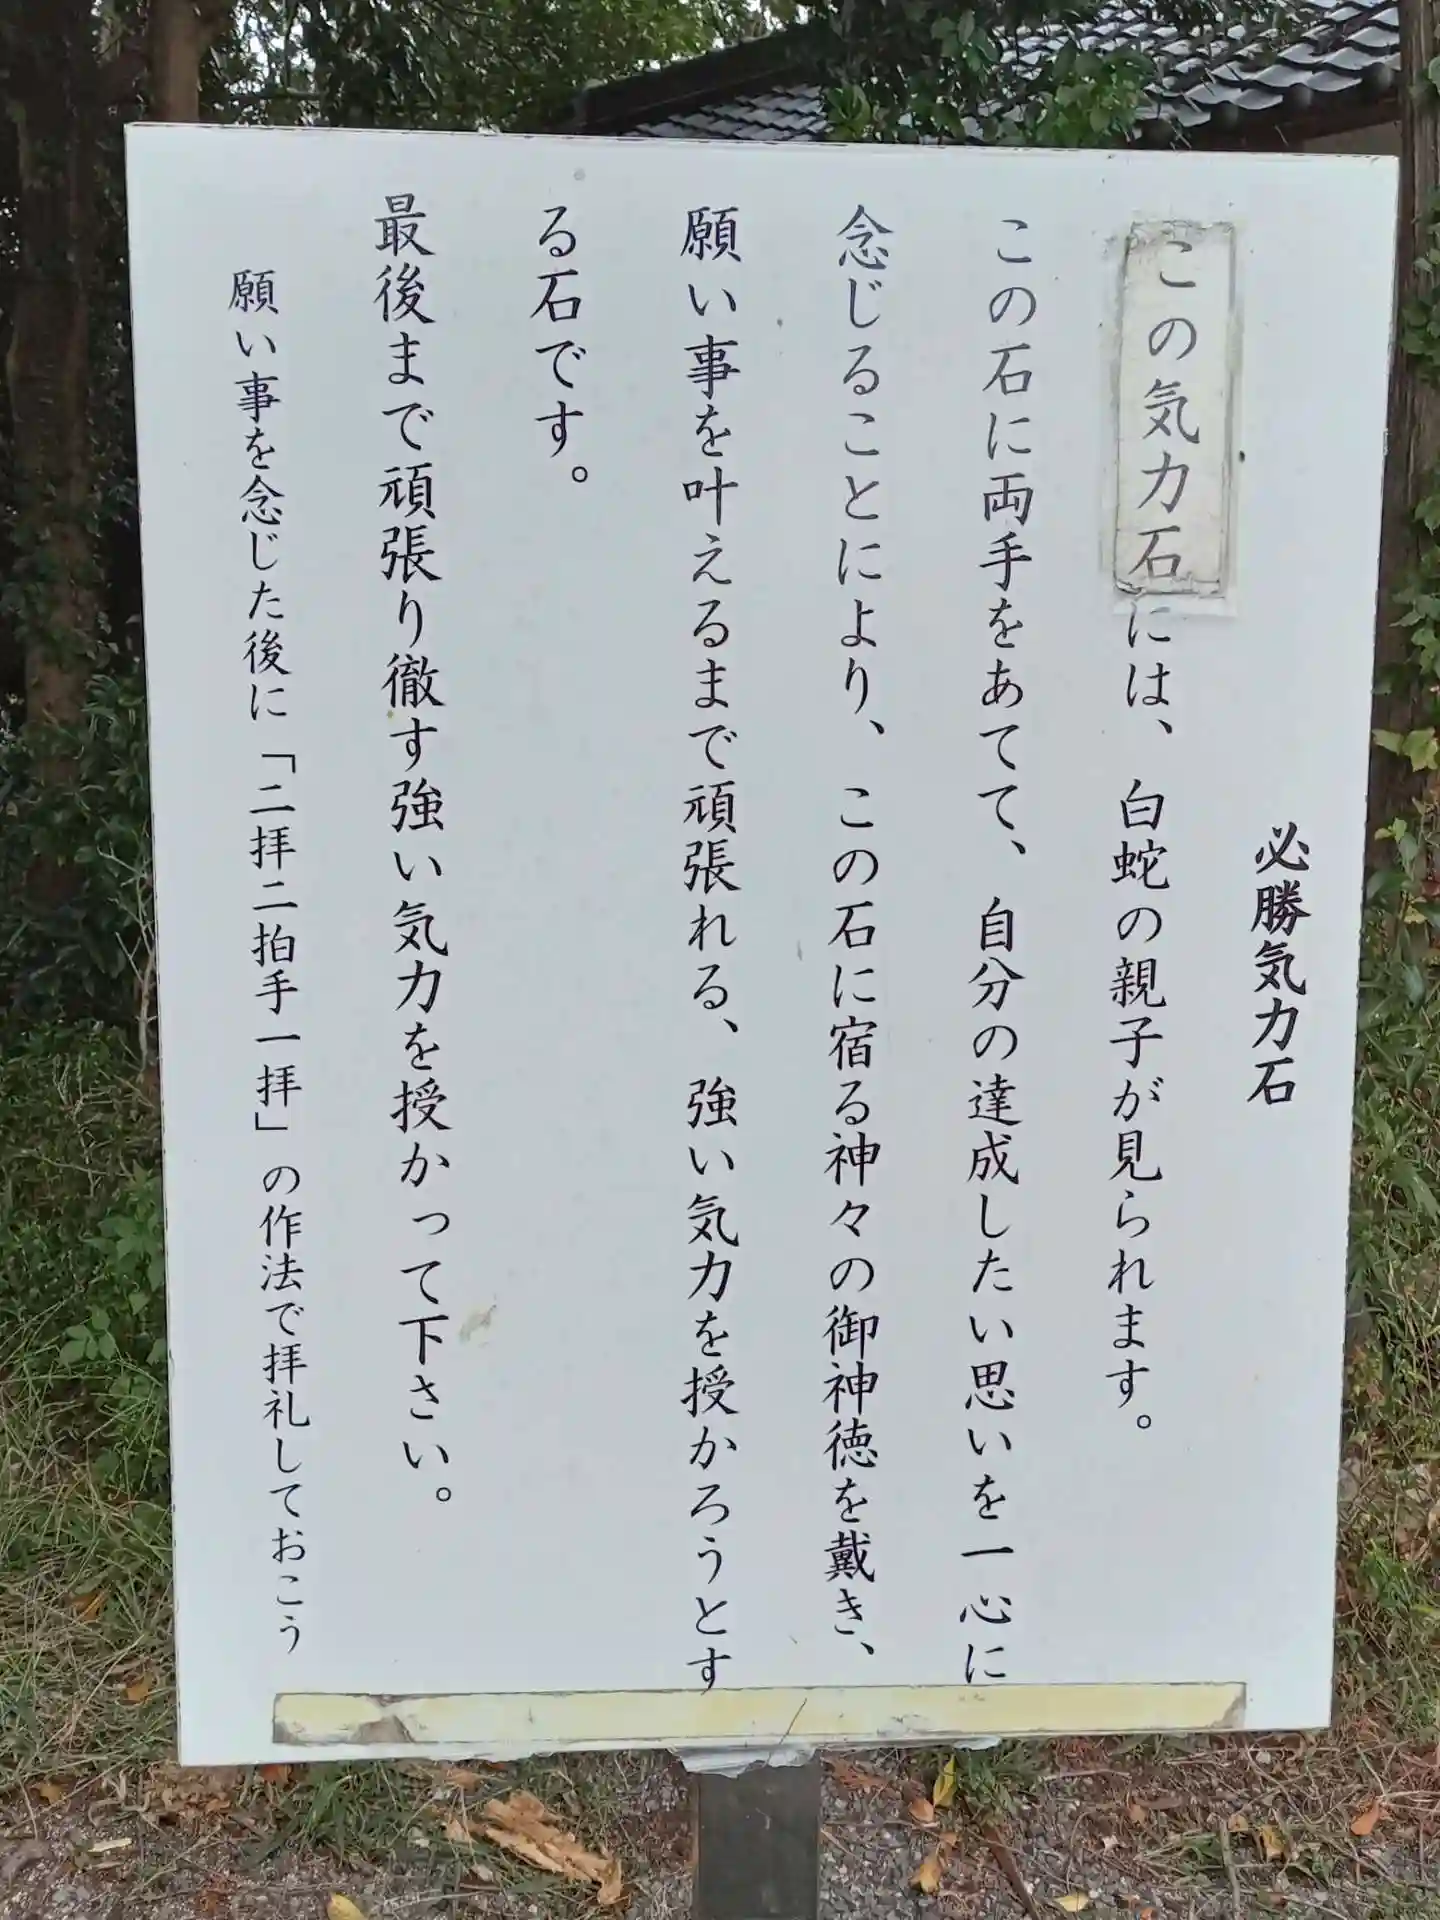 必勝気力石
この気力石には、白蛇の親子が見られます。
この石に両手をあてて、自分の達成したい思いを一心に
念じることにより、この石に宿る神々の御神徳を戴き、
願い事を叶えるまで頑張れる、強い気力を授かろうとす
る石です。
最後まで頑張り徹す強い気力を授かって下さい。
願い事を念じた後に「二拝二拍手一拝」の作法で拝礼しておこう